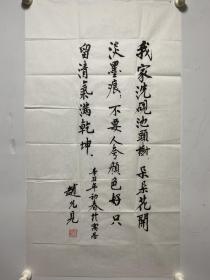 我家洗硯池頭樹朵朵花開
淡墨痕不要人夸顏色好只
留清氣滿乾坤
辛丑年初春於寓居
趙